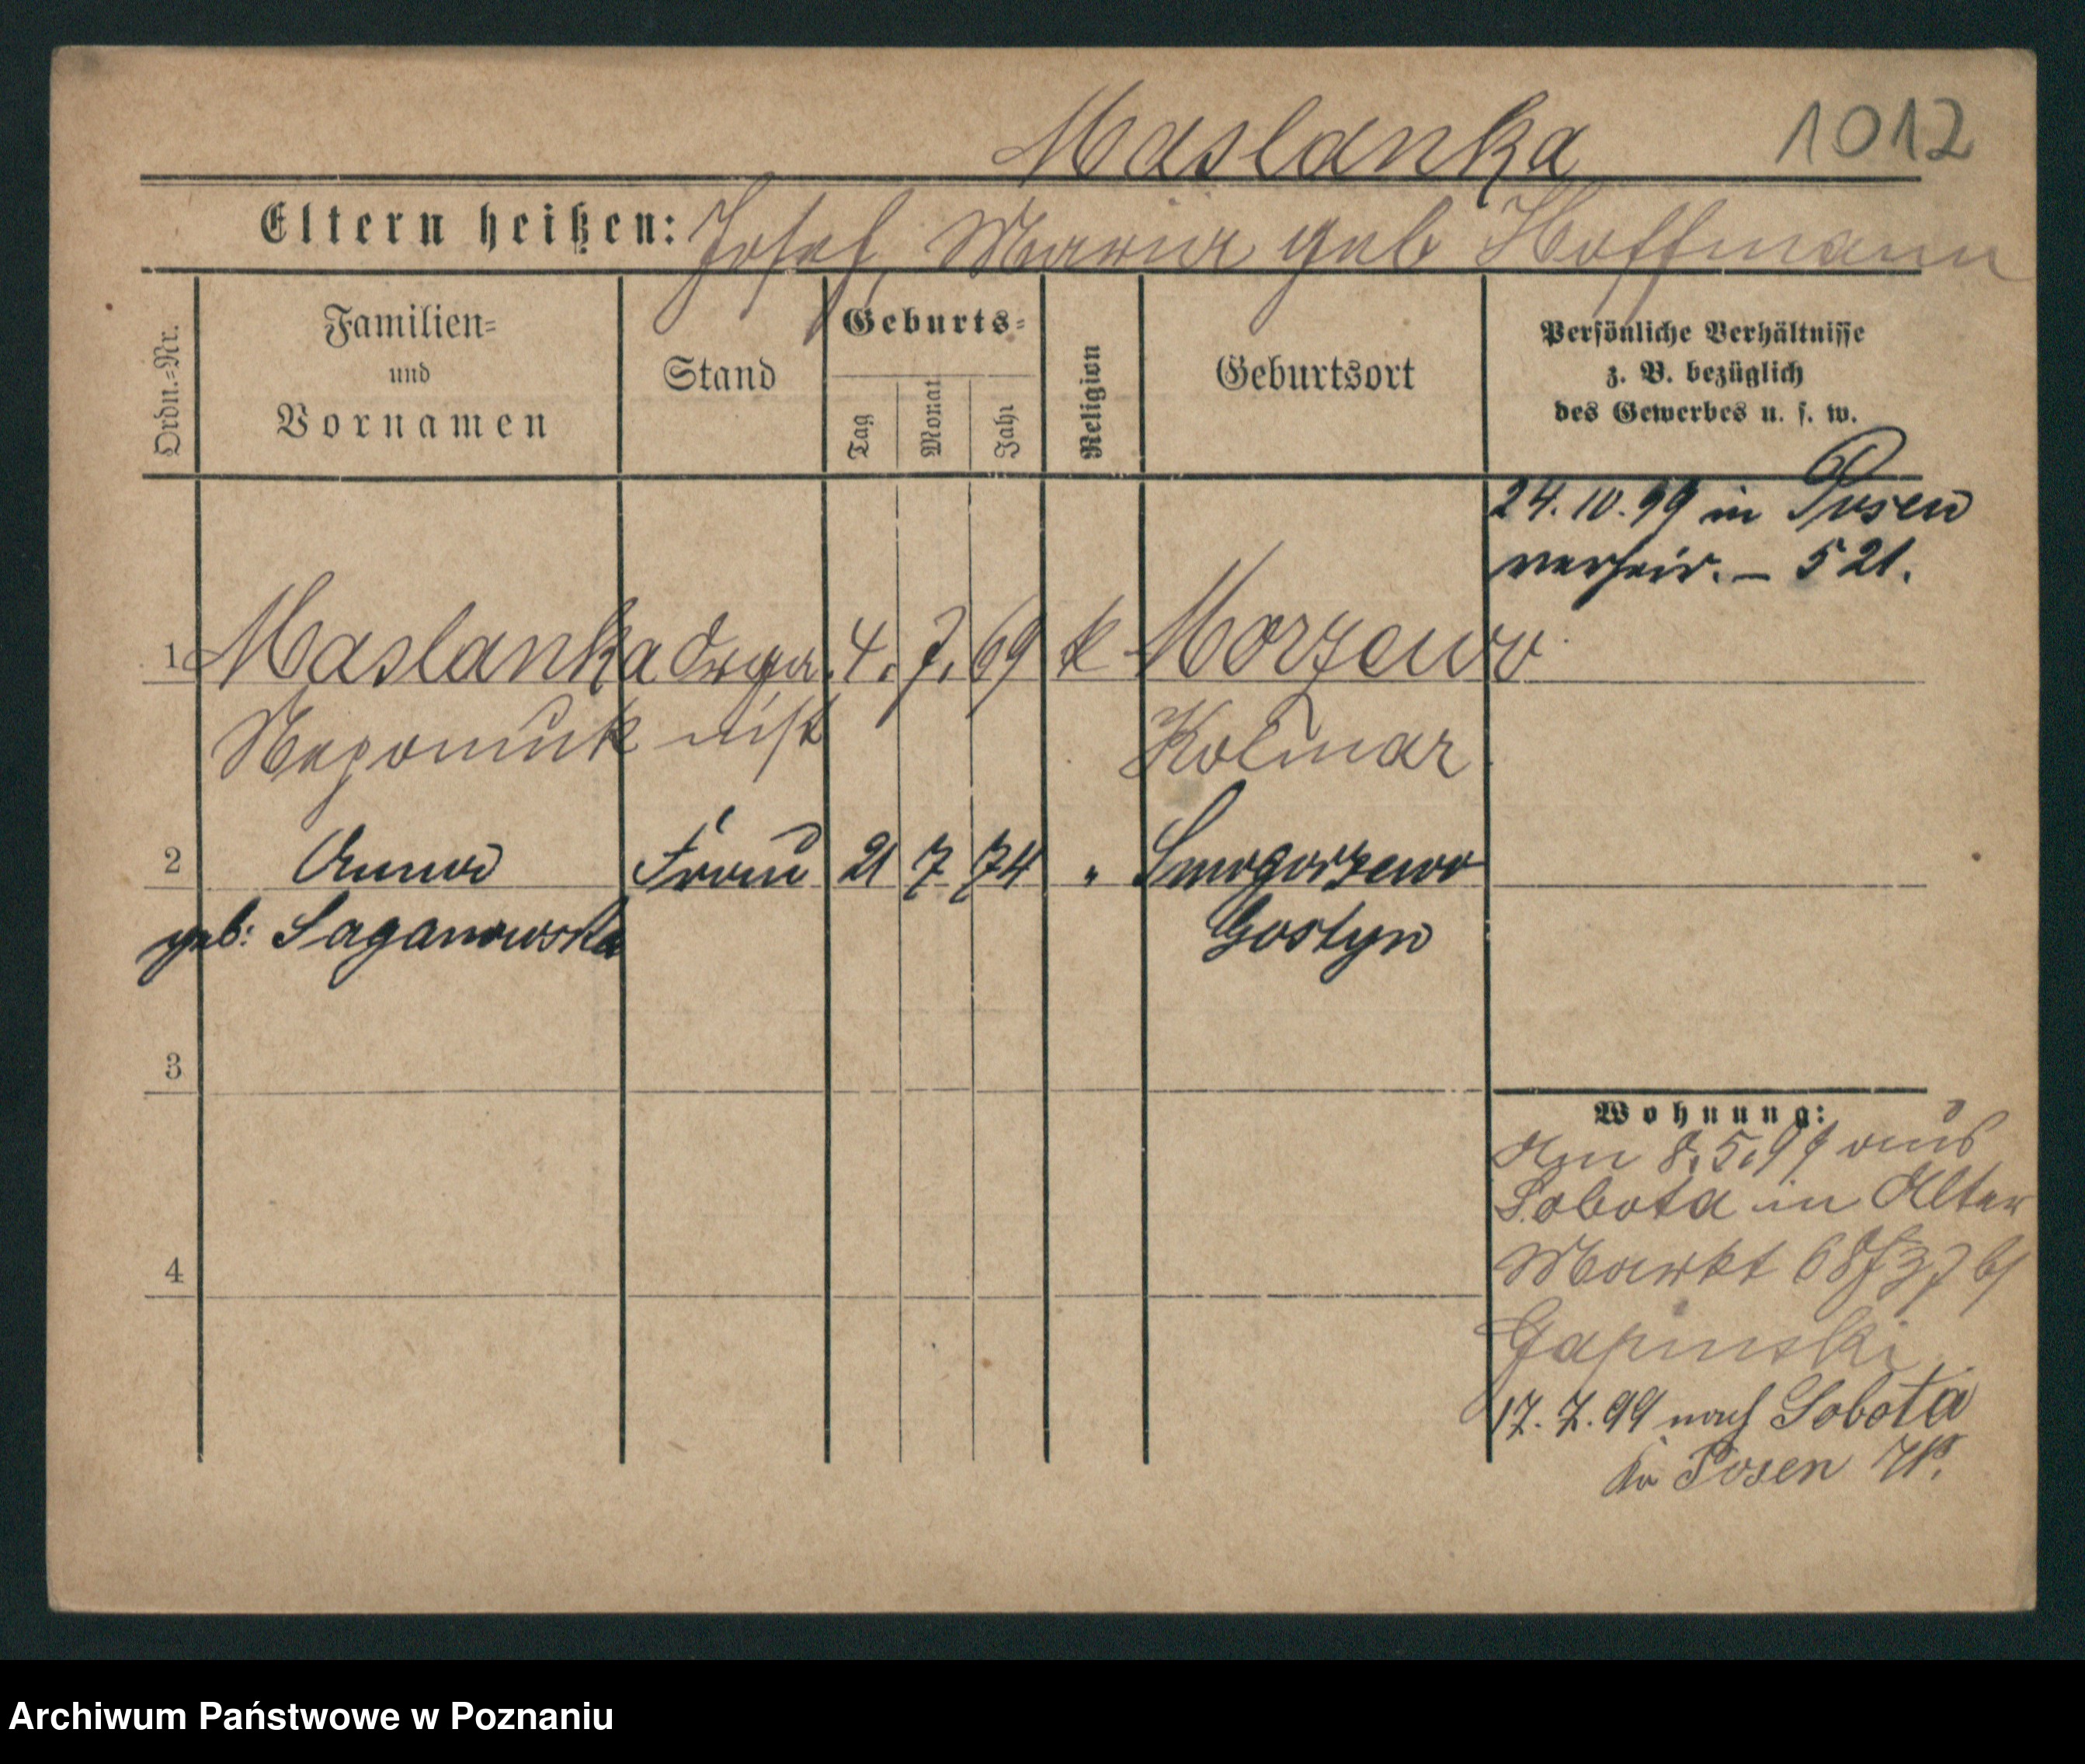 Maslanka 1012
Eltern heißen: Josef, Maria geb Hoffmann
Ordn.=Nr.
Familien=
und
Vornamen
Stand
Geburts=
Tag
Monat
Jahr
Religion
Geburtsort
Persönliche Verhältnisse
z. B. bezüglich
des Gewerbes u. s. w.
24.10.99 in Posen
verheir. – 521.
1 Maslanka Orga 4. 7. 69 k Morzewo
Nepomuk nist Kolmar
2 Anna Frau 21 7 74 " Smogorzewo
geb: Saganowska Gostyn
3
4
Wohnung:
Am 8.5.99 aus
Sobota in Alter
Markt 68/3
Gapinski
17.7.99 nach Sobota
Kr Posen
Archiwum Państwowe w Poznaniu